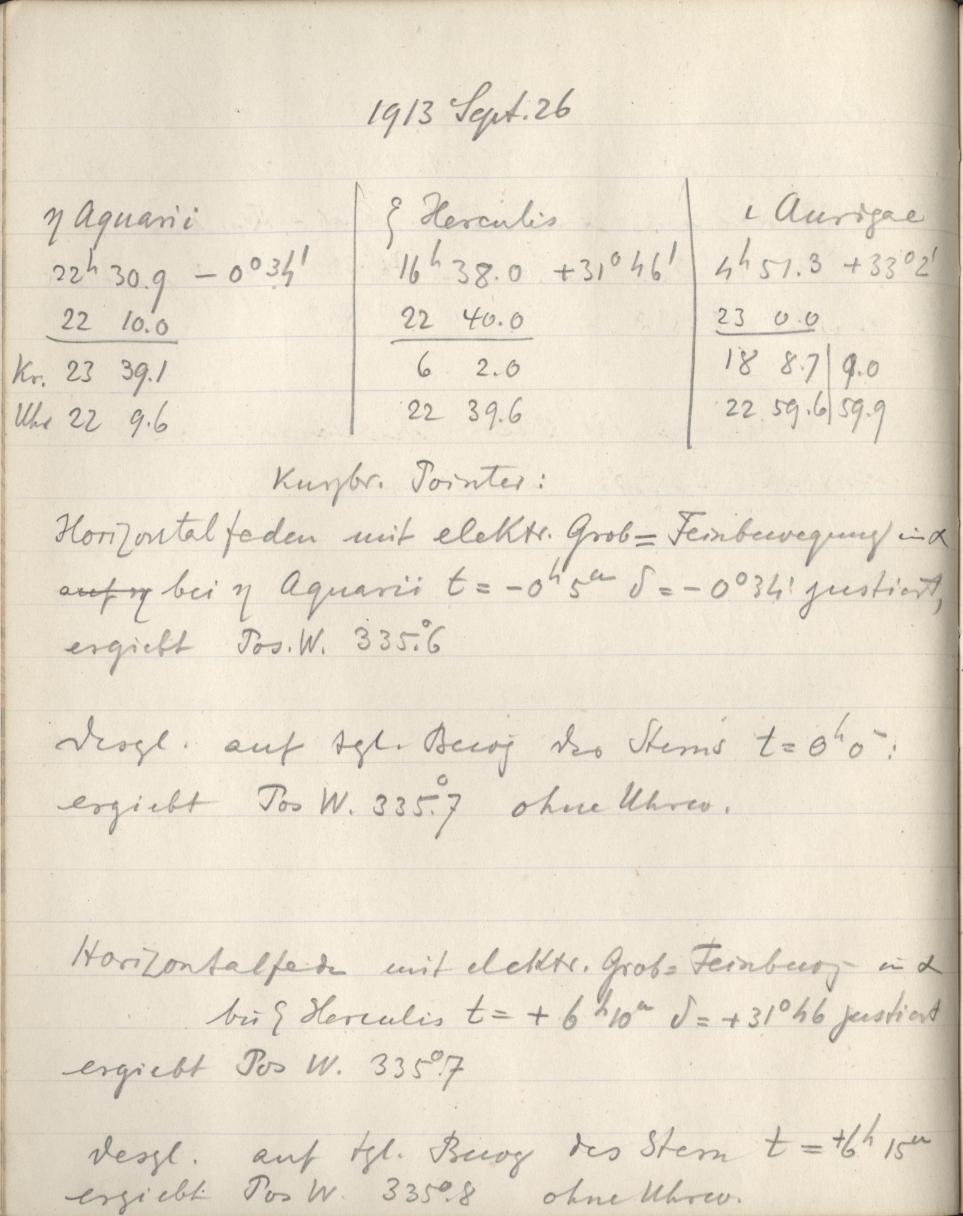 1913 Sept. 26
η Aquarii | ξ Herculis | ι Aurigae
22ʰ 30.9 − 0° 34' | 16ʰ 38.0 +31° 46' | 4ʰ 51.3 +33° 2'
22 10.0 | 22 40.0 | 23 0.0
Kr. 23 39.1 | 6 2.0 | 18 8.7 | 9.0
Uhr 22 9.6 | 22 39.6 | 22 59.6 | 59.9
Kurzbr. Pointer:
Horizontalfaden mit elektr. Grob= Feinbewegung in α
auf η bei η Aquarii t = −0ʰ 5ᵐ δ = −0° 34' justiert,
ergiebt Pos. W. 335.°6
desgl. auf tgl. Bewg des Sterns t = 0ʰ 0ᵐ:
ergiebt Pos W. 335.°7 ohne Uhrw.
Horizontalfaden mit elektr. Grob= Feinbewg in α
bei ξ Herculis t = + 6ʰ 10ᵐ δ = +31° 46 justiert
ergiebt Pos W. 335°.7
desgl. auf tgl. Bewg des Stern t = +6ʰ 15ᵐ
ergiebt Pos W. 335°.8 ohne Uhrw.